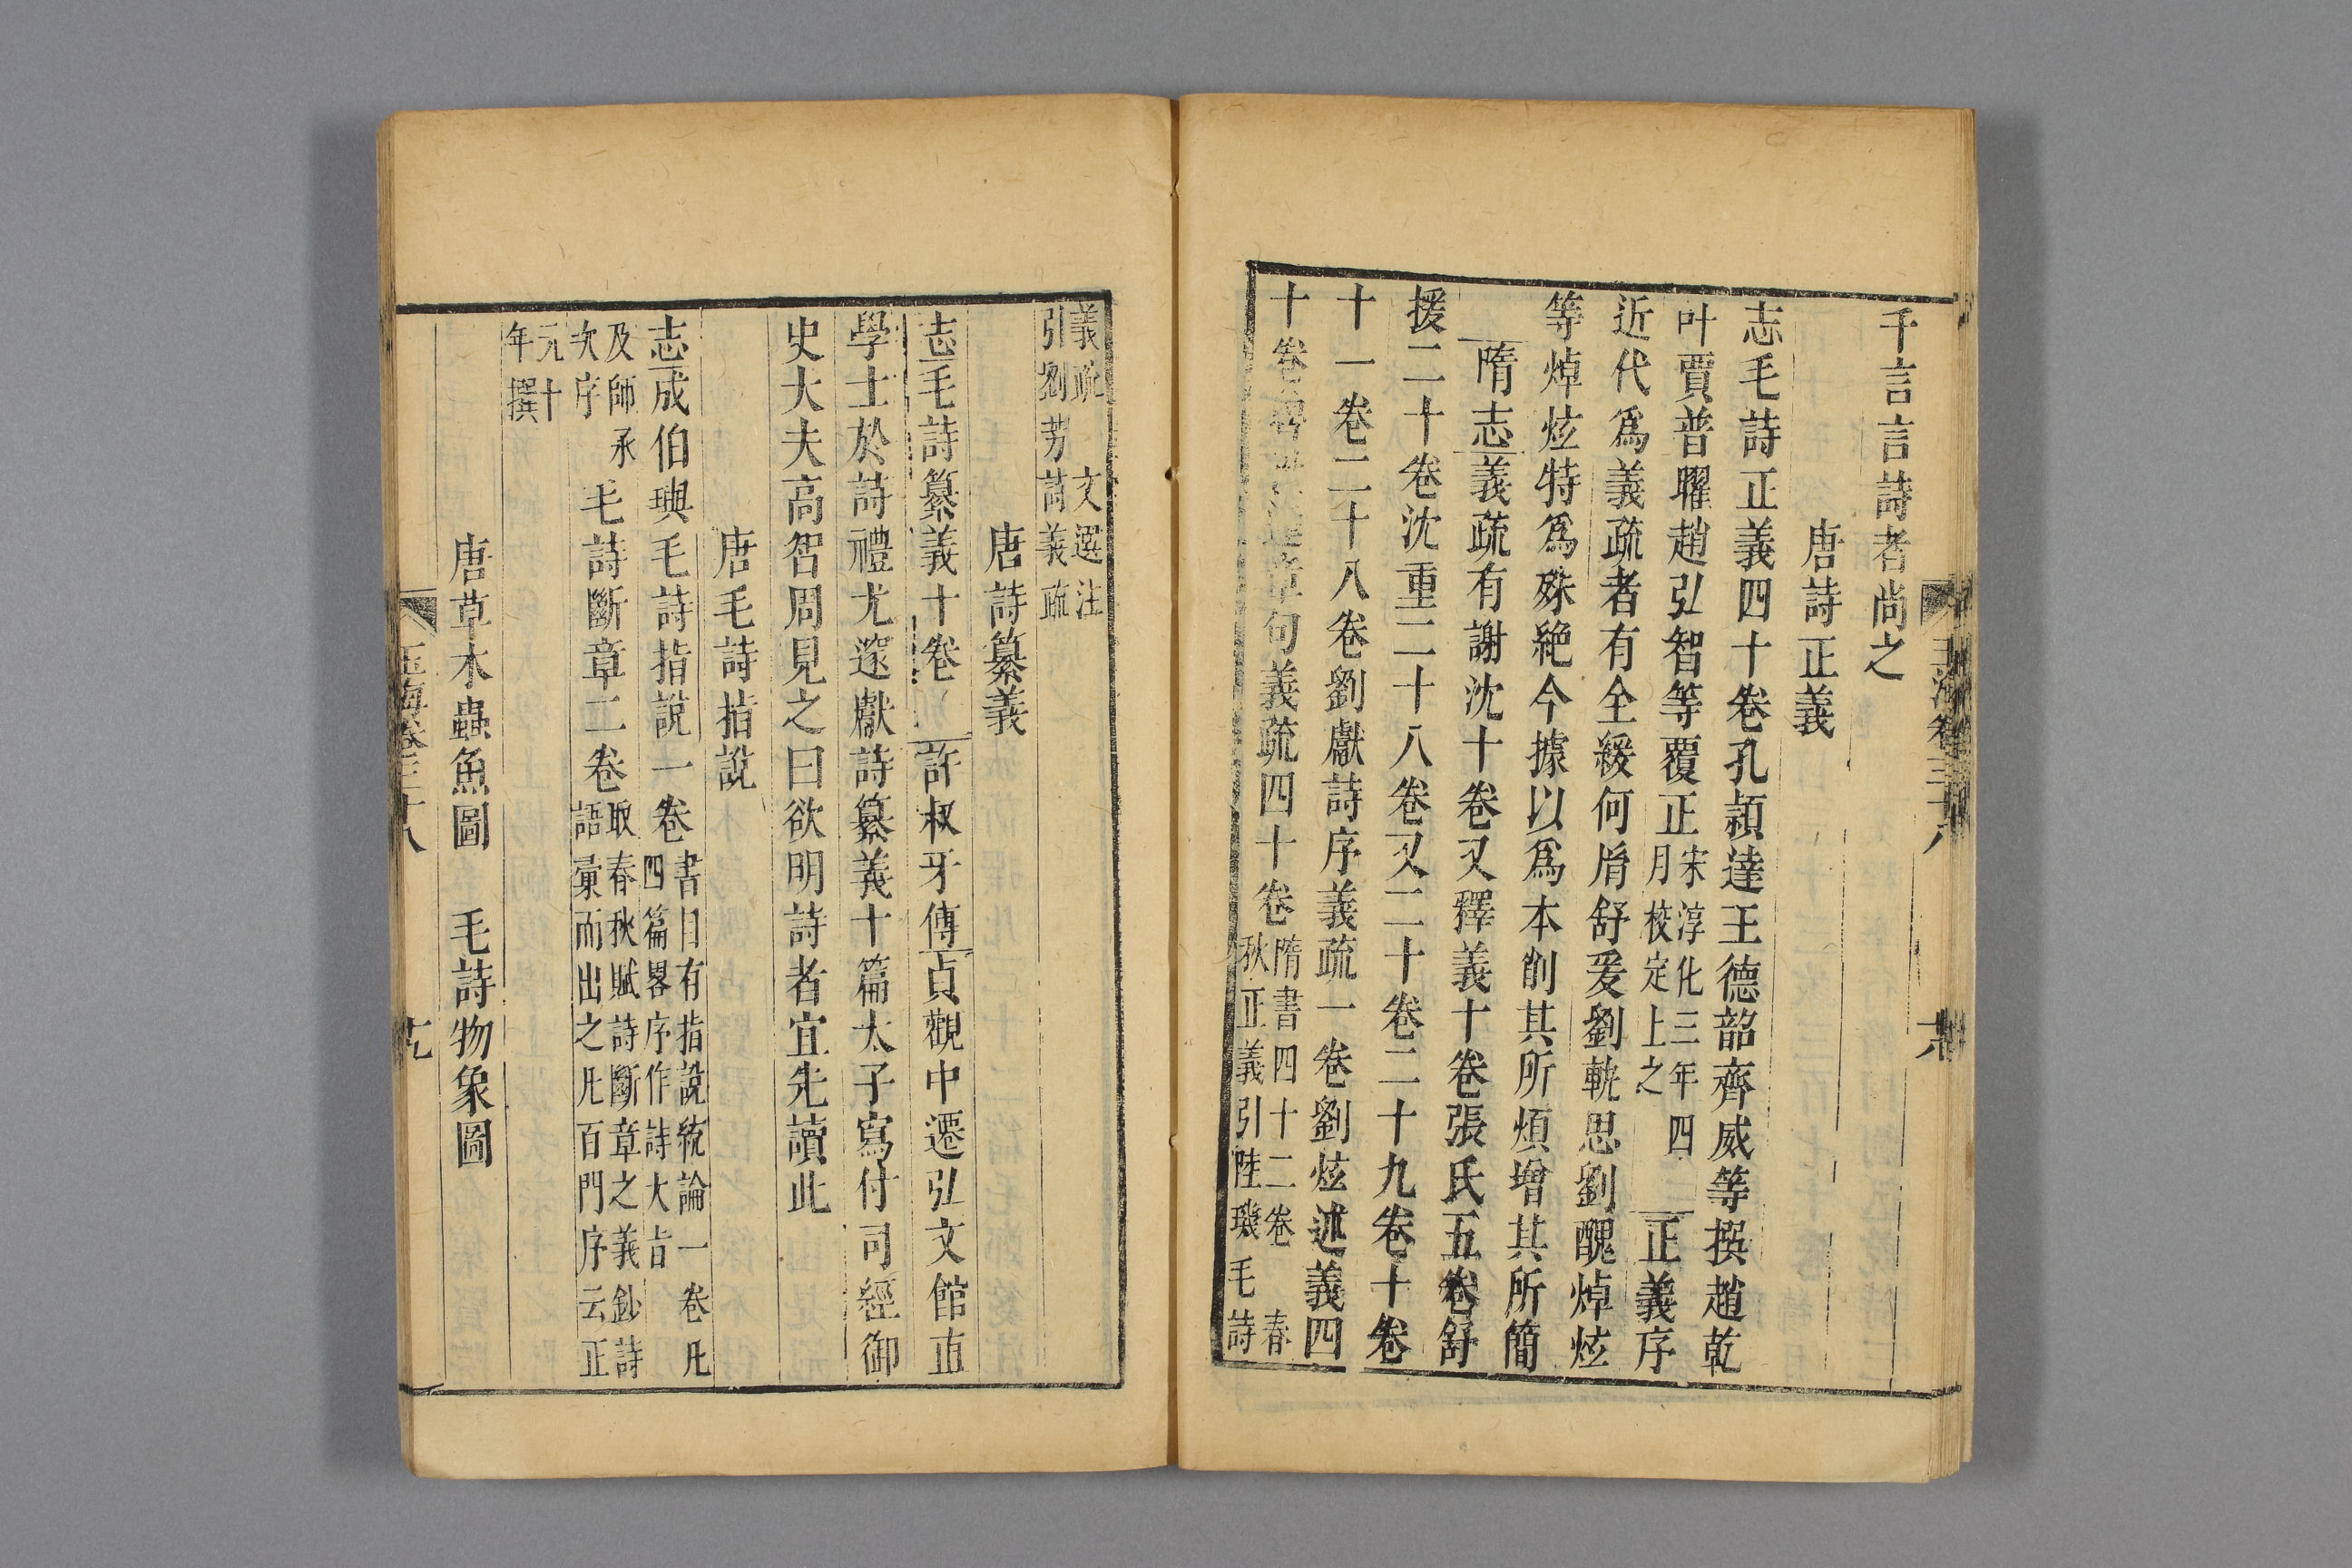 玉海卷三十八
十八
千言言詩者尚之
唐詩正義
志毛詩正義四十卷孔頴達王德韶齊威等撰趙乾
叶賈普曜趙弘智等覆正宋淳化三年四
月校定上之正義序
近代爲義疏者有全緩何胤舒爰劉軌思劉醜焯炫
等焯炫特爲殊絶今據以爲本削其所煩增其所簡
隋志義疏有謝沈十卷又釋義十卷張氏五卷舒
援二十卷沈重二十八卷又二十卷二十九卷十卷
十一卷二十八卷劉獻詩序義疏一卷劉炫述義四
十卷章句義疏四十卷隋書四十二卷 春
秋正義引陸璣毛詩
義疏 文選注
引劉芳詩義疏
唐詩纂義
志毛詩纂義十卷許叔牙傳貞觀中遷弘文館直
學士於詩禮尤邃獻詩纂義十篇太子寫付司經御
史大夫高智周見之曰欲明詩者宜先讀此
唐毛詩指說
志成伯璵毛詩指說一卷書目有指說統論一卷凡
四篇畧序作詩大旨
及師承
次序毛詩斷章二卷取春秋賦詩斷章之義鈔詩
語彙而出之凡百門序云正
元十
年撰
唐草木蟲魚圖 毛詩物象圖
玉海卷三十八
十九